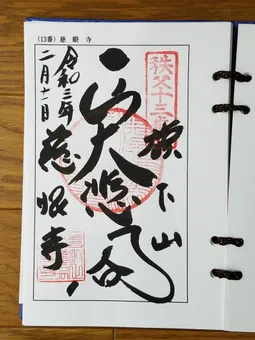 (13番) 慈眼寺
秩父十三
旗下山
大悲
令和三年
二月十一日
慈眼寺